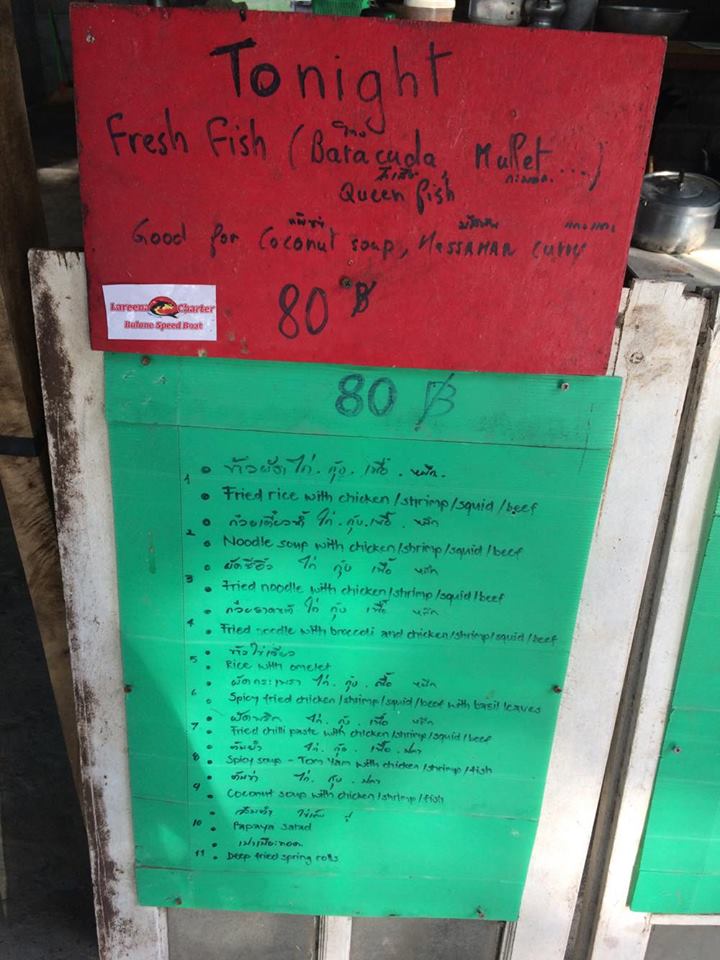 Tonight
Fresh Fish (Baracuda, Mullet ....)
Queen fish
Good for Coconut soup, MASSAMAN curry
80 ฿
Lareena Charter
Bulone Speed Boat
80 ฿
ข้าวผัด ไก่ . กุ้ง . เนื้อ . หมึก
1 • Fried rice with chicken/shrimp/squid/beef
ก๋วยเตี๋ยวน้ำ ไก่ . กุ้ง . เนื้อ . หมึก
2 • Noodle soup with chicken/shrimp/squid/beef
ผัดซีอิ๊ว ไก่ กุ้ง เนื้อ หมึก
3 • Fried noodle with chicken/shrimp/squid/beef
ไก่ กุ้ง เนื้อ หมึก
4 • Fried noodle with broccoli and chicken/shrimp/squid/beef
ข้าวไข่เจียว
5 • Rice with omelet
ผัดกระเพรา ไก่ . กุ้ง . เนื้อ หมึก
6 • Spicy fried chicken/shrimp/squid/beef with basil leaves
ผัดพริก ไก่ . กุ้ง . เนื้อ หมึก
7 • Fried chilli paste with chicken/shrimp/squid/beef
ต้มยำ ไก่ . กุ้ง . เนื้อ . ปลา
8 • Spicy soup - Tom Yam with chicken/shrimp/fish
ต้มข่า ไก่ . กุ้ง . ปลา
9 • Coconut soup with chicken/shrimp/fish
ส้มตำ ไข่เค็ม ปู
10 • Papaya salad
เปาะเปี๊ยะทอด
11 • Deep fried spring rolls